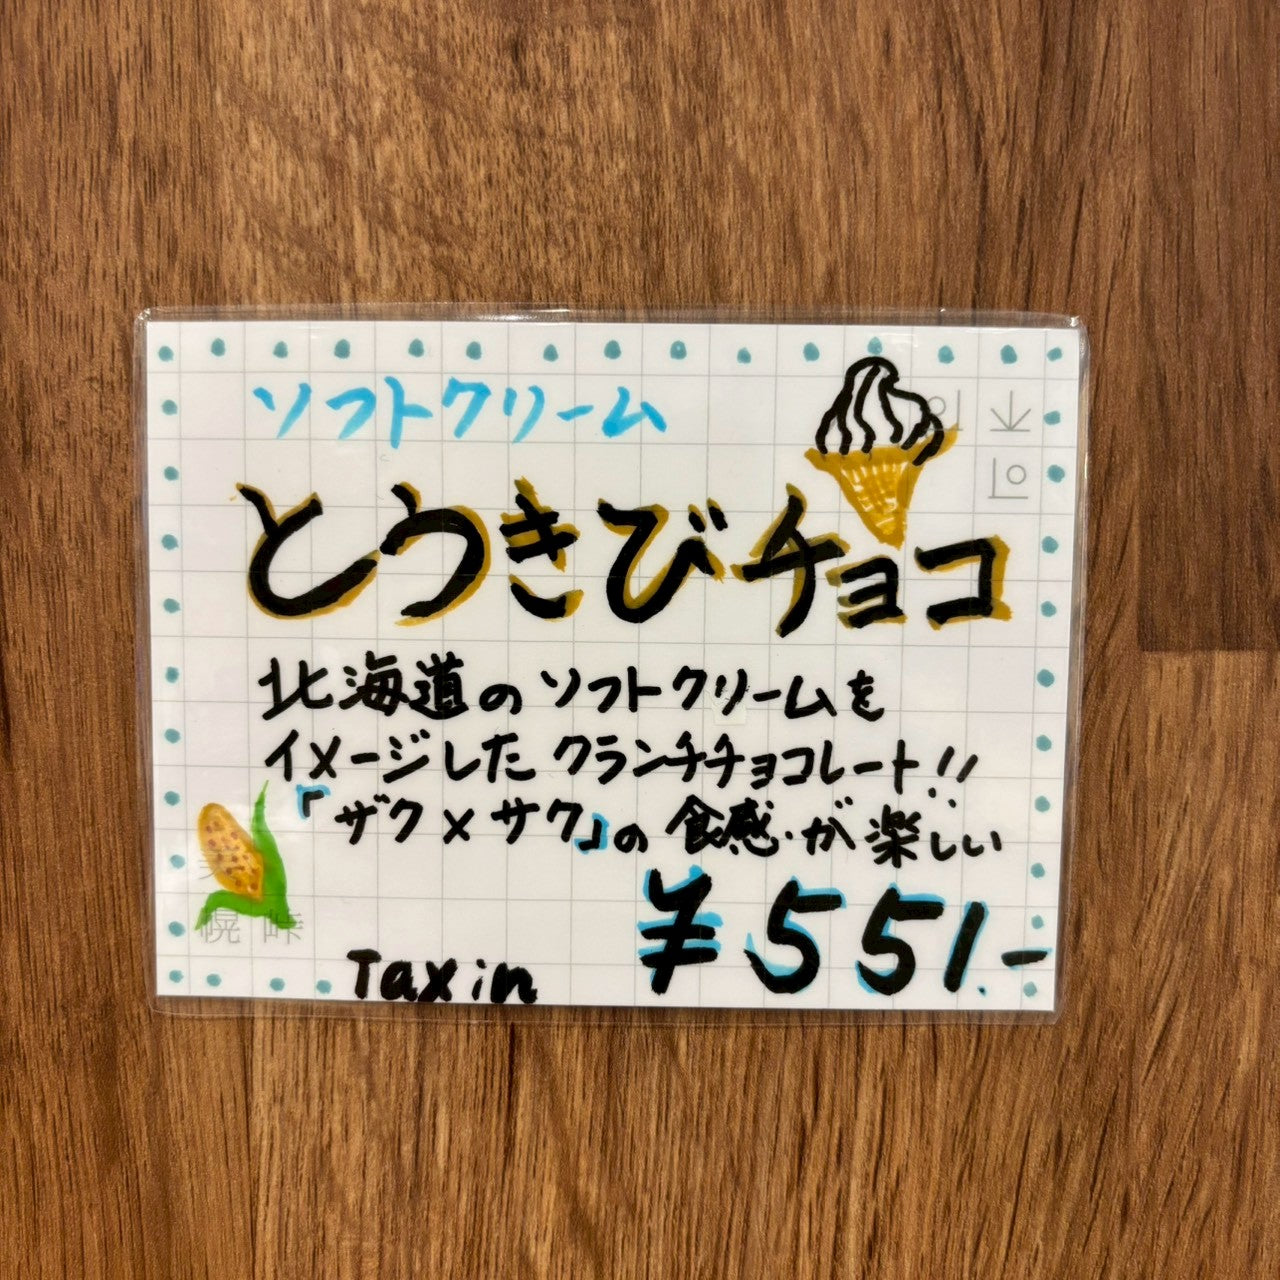 ソフトクリーム
とうきびチョコ
北海道のソフトクリームを
イメージしたクランチチョコレート!!
「ザク×サク」の食感が楽しい
¥551.-
Taxin
幌 峠